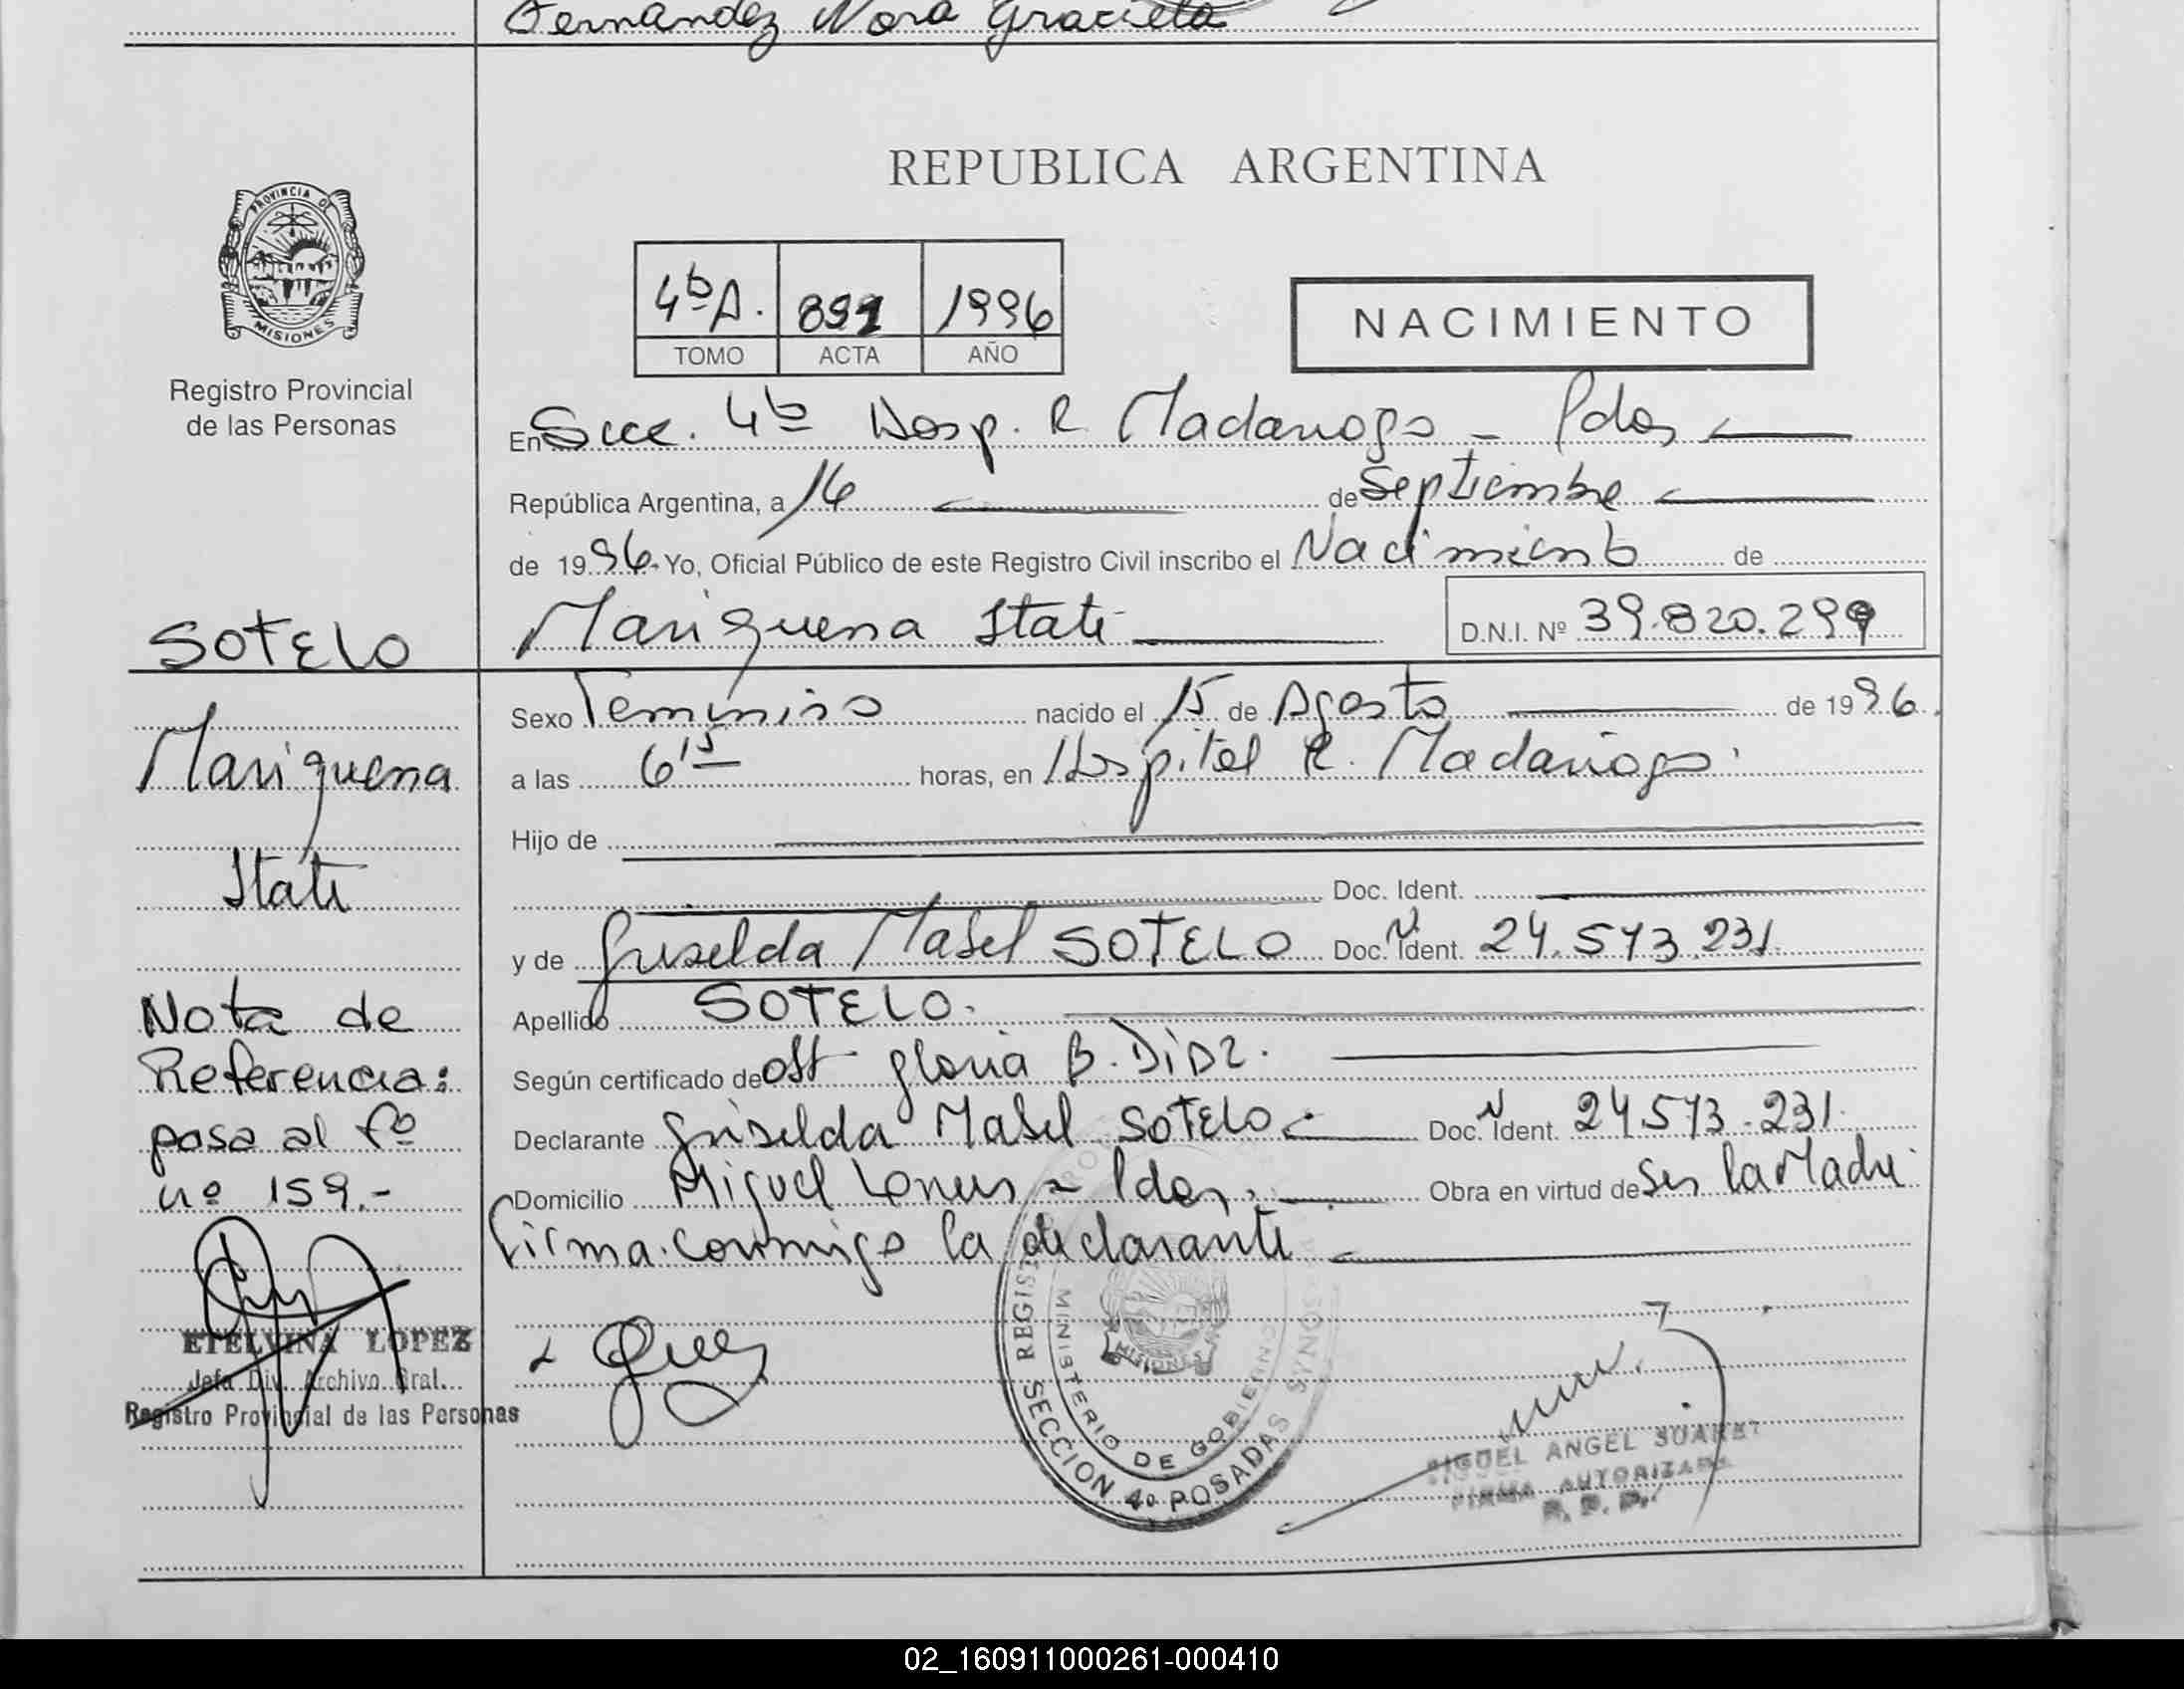 Fernandez Nora Graciela
REPUBLICA ARGENTINA
PROVINCIA DE
MISIONES
Registro Provincial
de las Personas
4ᵇA. 891 1996
TOMO ACTA AÑO
NACIMIENTO
En Secc. 4ᵇ Hosp. R Madariaga - Pdas
República Argentina, a 16 de Septiembre
de 1996. Yo, Oficial Público de este Registro Civil inscribo el Nacimiento de
Mariquena Itati
D.N.I. Nº 39.820.299
SOTELO
Mariquena
Itati
Sexo Femenino nacido el 15 de Agosto de 1996.
a las 6¹⁵ horas, en Hospital R. Madariaga.
Hijo de
Doc. Ident.
y de Griselda Mabel SOTELO Doc. Ident. 24.573.231
Apellido SOTELO.
Según certificado de Obst Gloria B. Diaz.
Declarante Griselda Mabel SOTELO Doc. Ident. 24.573.231
Domicilio Miguel Lanus - Pdas. Obra en virtud de Ser la Madre
Firma conmigo la declarante
Nota de
Referencia:
pasa al fº
nº 159.-
ETELVINA LOPEZ
Jefa Div. Archivo Gral.
Registro Provincial de las Personas
MINISTERIO DE GOBIERNO
MISIONES
SECCION 4ª POSADAS
MIGUEL ANGEL SUAREZ
FIRMA AUTORIZADA
R. P. P.
02_160911000261-000410